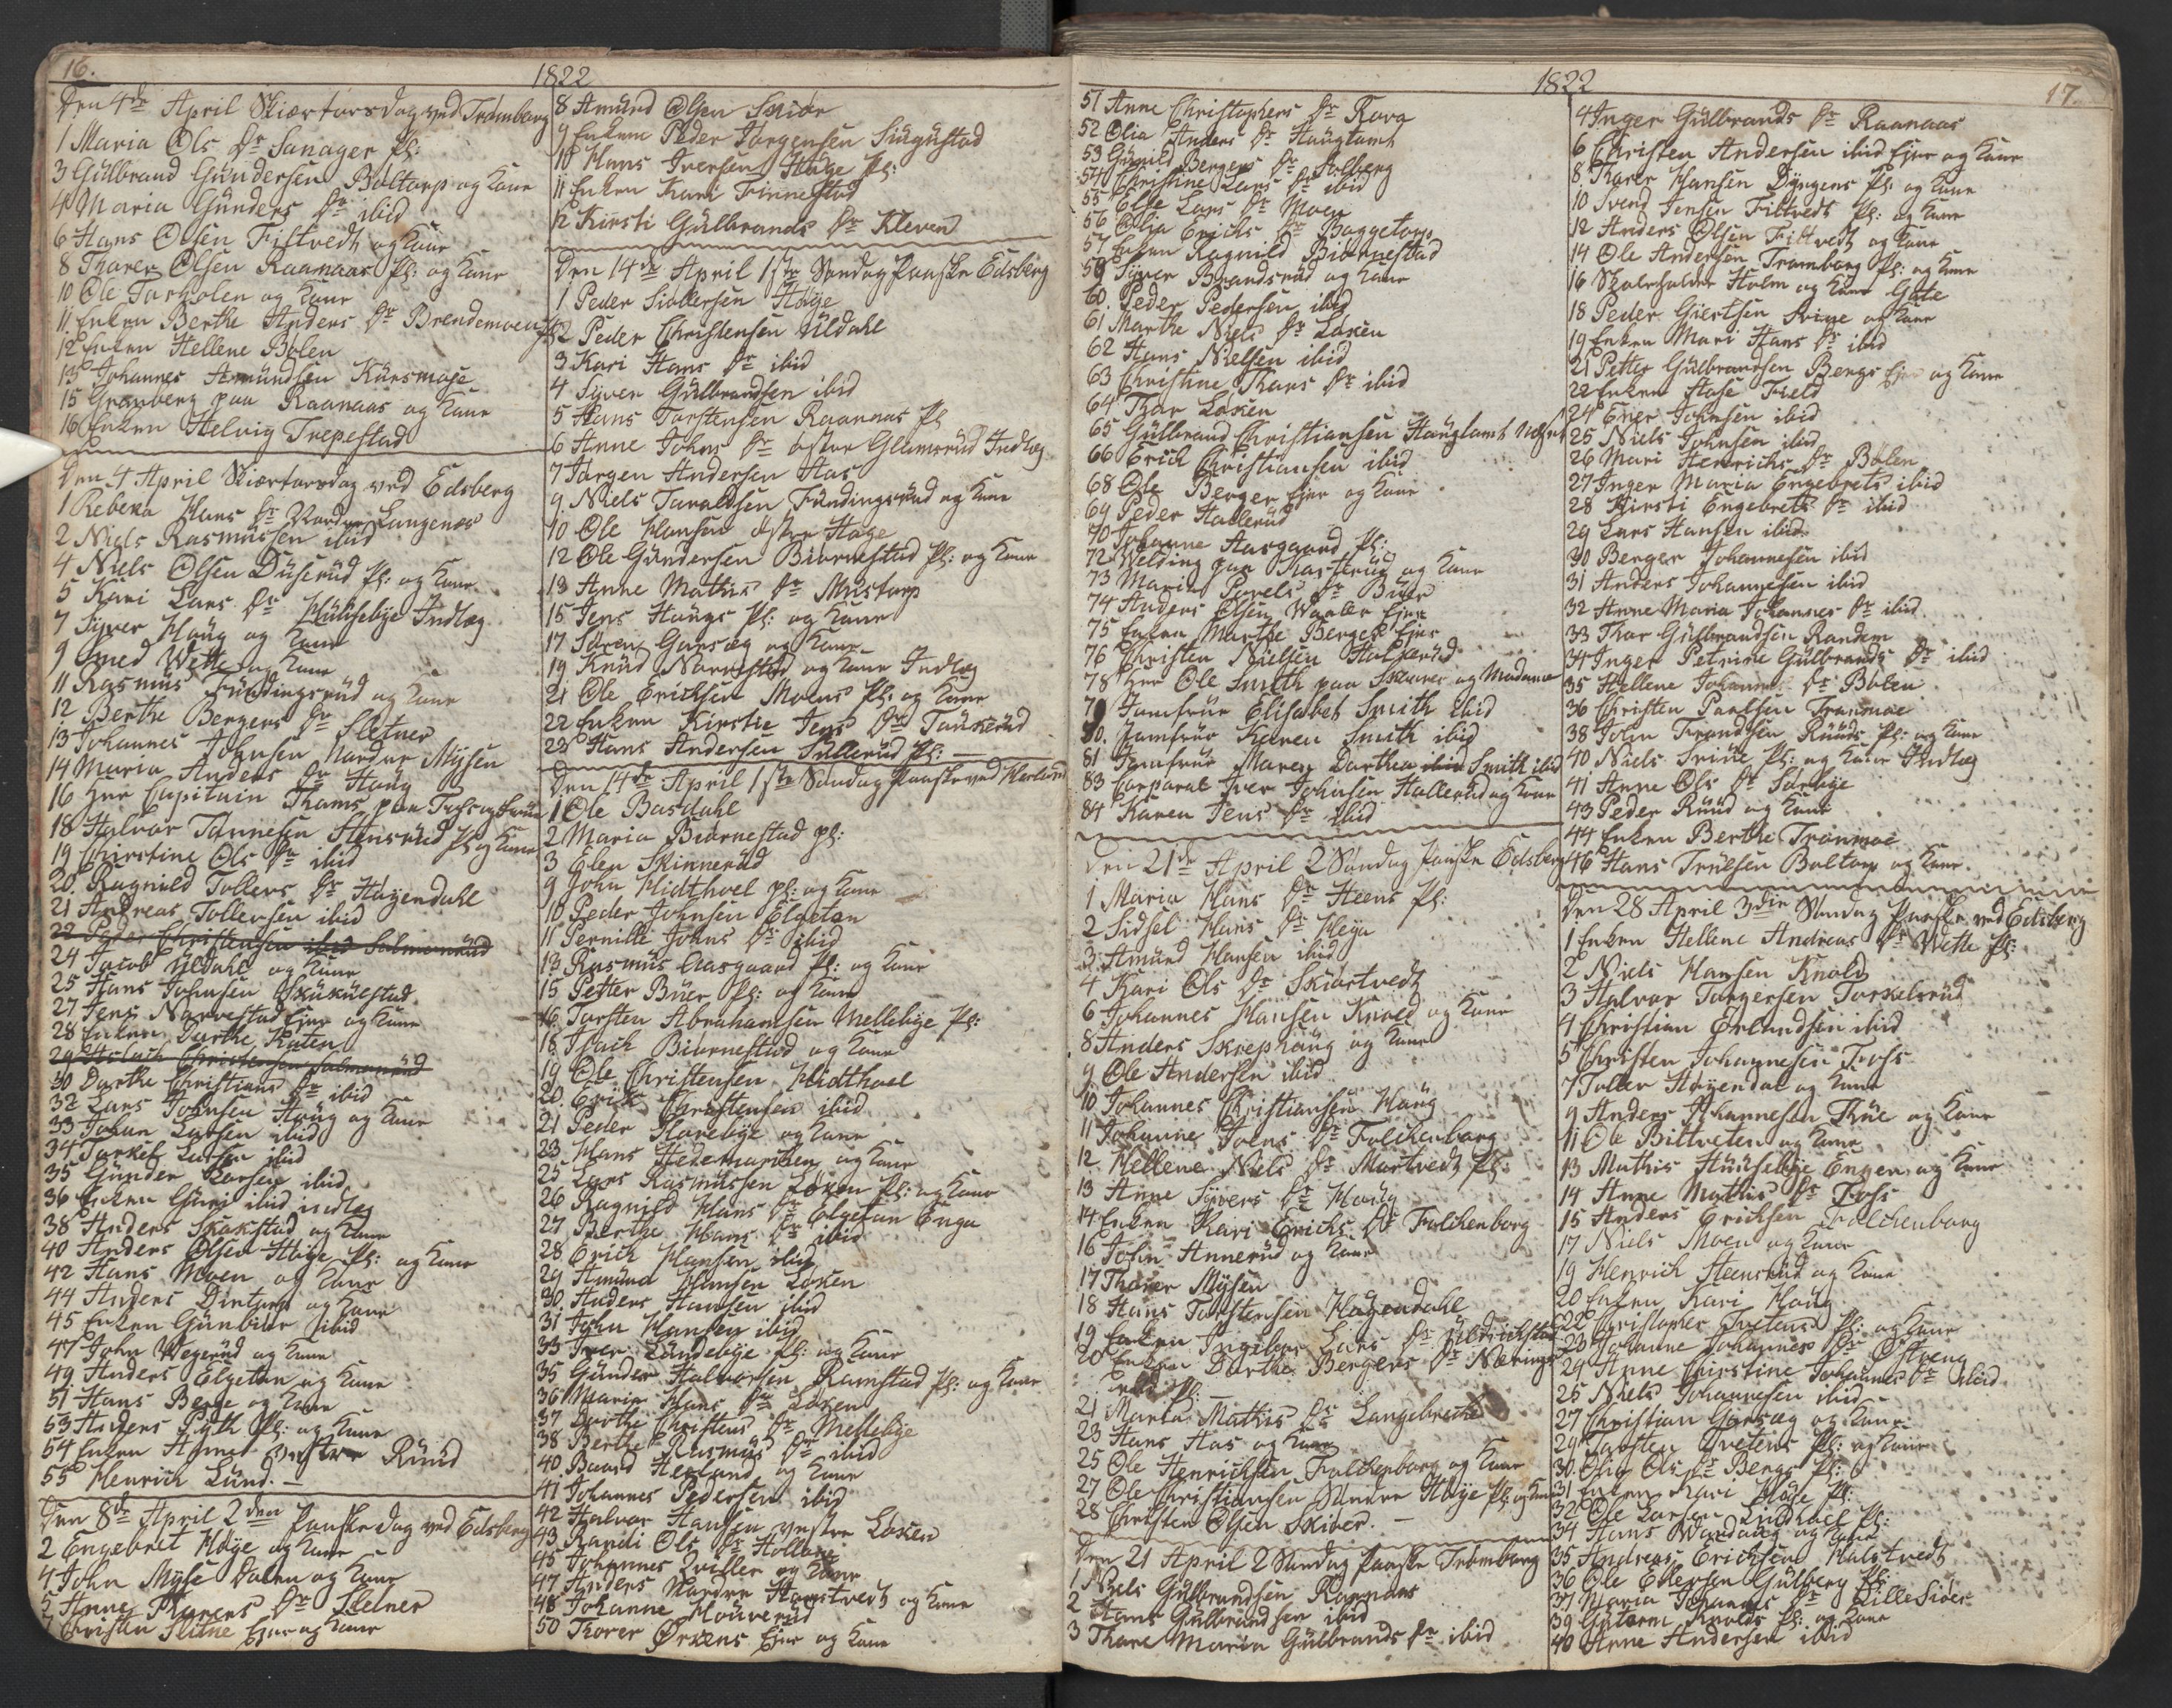 16.
1822
Den 4de April Skiærtorsdag ved Trømborg
1 Maria Ols Dr Sanager Pl:
3 Gülbrand Gündersen Boltorp og Kone
4 Maria Günders Dr ibid
6 Hans Olsen Fiktvedt og Kone
8 Thorer Olsen Raanaas Pl: og Kone
10 Ole Torholen og Kone
11. Enken Berthe Anders Dr Brendemoen
12 Enken Hellene Bølen
13 Johannes Amündsen Kürsmose
15 Gramberg paa Raanaas og Kone
16 Enken Helvig Trepestad
Den 4 April Skiærtorsdag ved Edsberg
1 Rebeka Hans Dr Nordre Langenæs
2 Niels Rasmüssen ibid
4 Niels Olsen Düserüd Pl: og Kone
5 Kari Lars Dr Hülisebye Indlæg
7 Syver Haüg og Kone
9 Smed Wette og Kone
11 Rasmüs Fündingsrüd og Kone
12 Berthe Bergers Dr Sletner
13 Johannes Johnsen Nordre Mysen
14 Maria Anders Dr Haüg
16 Herr Capitain Thams paa Fosrog Früe
18 Halvor Tønnesen Stensrüd Pl og Kone
19 Chirstine Ols Dr ibid
20. Ragnild Tollevs Dr Høyendahl
21 Andreas Tollevsen ibid
22 Peder Christensen ibid Salmonrüd
24 Jacob Uldahl og Kone
25 Hans Johnsen Skükülstad
27 Jens Narvestad Ejer og Kone
28 Enken Dorthe Katen
29 Aslach Christensen Salmonrüd
30 Dorthe Christians Dr ibid
32 Lars Johnsen Haüg og Kone
33 Johan Larsen ibid
34 Torkel Larsen ibid
35 Günder Larsen ibid
36 Enken Güri ibid indlæg
38 Anders Skakstad og Kone
40 Anders Olsen Høye Pl: og Kone
42 Hans Moen og Kone
44 Anders Dintorp og Kone
45 Enken Günbior ibid
47 John Wegerüd og Kone
49 Anders Elgetun og Kone
51 Hans Berge og Kone
53 Anders Pyth Pl: og Kone
54 Enken Agnet østre Rüüd
55 Henrich Lünd. —
Den 8de April 2den Paaskedag ved Edsberg
2 Engebret Høye og Kone
4 John Myse Dalen og Kone
5 Anne Thorers Dr Sletner
7 Christen Slitne Ejer og Kone
8 Amünd Olsen Skiør
9 Enken Peder Jørgensen Sügüstad
10 Hans Iversen Høye Pl:
11 Enken Kari Finnestad
12 Kirsti Gülbrands Dr Kleven
Den 14de April 1ste Søndag Paaske Edsberg
1 Peder Siøllersen Høye
2 Peder Christensen Uldahl
3 Kari Hans Dr ibid
4 Syver Gülbrandsen ibid
5 Hans Torstensen Raanaas Pl
6 Anne Johns Dr østre Glamsrüd Indlæg
7 Jørgen Andersen Aas
9. Niels Taraldsen Fündingsrüd og Kone
10 Ole Hansen østre Høye
12 Ole Gündersen Biørnestad Pl: og Kone
13 Anne Mathis Dr Müstorp
15 Jens Haügs Pl: og Kone
17 Søren Gorsæg og Kone
19. Knüd Narvestad og Kone Indlæg
21 Ole Erichsen Moens Pl: og Kone
22 Enken Kirstie Jens Dr Taükerüd
23 Hans Andersen Süllerüd Pl: —
Den 14de April 1ste Søndag Paaske ved Herland
1 Ole Basdahl
2 Maria Biørnestad pl:
3 Elen Skinnerüd
9 John Hidthoel pl: og Kone
10 Peder Johnsen Elgetun
11 Pernille Johns Dr ibid
13 Rasmüs Aasgaard Pl: og Kone
15 Petter Büer Pl: og Kone
16. Torsten Abrahamsen Mellebye Pl:
18 Isach Biørnestad og Kone
19 Ole Christensen Hidthoel
20. Erich Christensen ibid
21 Peder Horebye og Kone
23 Hans Hedemarken og Kone
25 Lars Rasmüssen Løken Pl: og Kone
26 Ragnild Hans Dr Elgetun Enga
27 Berthe Hans Dr ibid
28 Erich Hansen ibid
29 Amünd Hansen Løken
30. Anders Hansen ibid
31 John Hansen ibid
33 Iver Lündebye Pl: og Kone
35 Günder Halvorsen Ramstad Pl: og Kone
36 Maria Hans Dr Løken
37 Dorthe Christens Dr Mellebye
38 Berthe Rasmüs Dr ibid
40 Baard Herland og Kone
41 Johannes Pedersen ibid
42 Halvor Hansen vestre Løken
43 Randi Ols Dr Hollon
45 Johannes Qviller og Kone
47 Anders Nordre Hamstvedt og Kone
48 Johanne Houverüd
50 Thorer Ørxens Ejer og Kone
1822
17.
51 Anne Christophers Dr Kova
52 Olia Anders Dr Haügtomt
53 Günild Bergers Dr Solberg
54 Christine Lars Dr ibid
55 Else Lars Dr Moen
56 Olia Erichs Dr Baggetorp
57 Enken Ragnild Biørnestad
59 Syver Brandsrüd og Kone
60. Peder Pedersen ibid
61 Marthe Niels Dr Løken
62 Hans Nielsen ibid
63 Christine Thors Dr ibid
64 Thor Løken
65 Gülbrand Christiansen Haügtomt
66 Erich Christiansen ibid
68 Ole Berger Ejer og Kone
69 Peder Hallerüd
70 Johanne Aasgaard Pl:
72 Welding paa Kastrüd og Kone
73 Maria Povels Dr Büer
74 Anders Olsen Waaler Ejer
75 Enken Marthe Berger Ejer
76 Christen Nielsen Halserüd
78 Herr Ole Smith paa Skaarer og Madame
79 Jomfrue Elisabet Smith ibid
80. Jomfrue Karen Smith ibid
81 Jomfrue Maren Dorthea ibid Smith ibid
83 Corporal Iver Johnsen Hallerüd og Kone
84 Karen Jens Dr ibid
Den 21de April 2 Søndag Paaske Edsberg
1 Maria Hans Dr Heens Pl:
2 Sidsel Hans Dr Heye
3 Amünd Hansen ibid
4 Kari Ols Dr Skiørtvedt
6 Johannes Hansen Knold og Kone
8 Anders Skrephaüg og Kone
9 Ole Andersen ibid
10 Johannes Christiansen Haüg
11 Johanne Joens Dr Folckenborg
12. Hellene Niels Dr Martvedt Pl:
13 Anne Syvers Dr Haüg
14 Enken Kari Erichs Dr Folckenborg
16 John Annerüd og Kone
17 Thorer Mysen
18 Hans Torstensen Høyendahl
19 Enken Ingebor Lars Dr Üldrichstad
20 Enken Dorthe Bergers Dr Nærings
rüd Pl:
21 Marta Mathis Dr Langebrecke
23 Hans Aas og Kone
25 Ole Henrichsen Folckenborg og Kone
27 Ole Christiansen Søndre Høye Pl: og Kone
28 Christen Olsen Skiøer. —
Den 21 April 2 Søndag Paaske Trømborg
1 Niels Gülbrandsen Raanaas
2 Hans Gülbrandsen ibid
3 Thore Maria Gülbrands Dr ibid
4 Inger Gülbrands Dr Raanaas
6 Christen Andersen ibid Ejer og Kone
8 Thorer Hansen Dyngens Pl: og Kone
10 Svend Jensen Fiktvedt Pl: og Kone
12 Anders Olsen Fiktvedt og Kone
14 Ole Andersen Trømborg Pl: og Kone
16 Skoleholder Holm og Kone Gote
18 Peder Giertsen Sviue og Kone
19 Enken Mari Hans Dr ibid
21 Petter Gülbrandsen Bergs Ejer og Kone
22 Enken Aase Field
24 Ener Johnsen ibid
25 Niels Johnsen ibid
26 Mari Henrichs Dr Bølen
27 Inger Maria Engebrets ibid
28 Kirsti Engebrets Dr ibid
29 Lars Hansen ibid
30 Berger Johannesen ibid
31 Anders Johannesen ibid
32 Anne Maria Johannes Dr ibid
33 Thor Gülbrandsen Randem
34 Inger Petrine Gülbrands Dr ibid
35 Hellene Johannes Dr Bølen
36 Christen Paalsen Trønmoe
38 John Frandsen Rüüds Pl: og Kone
40 Niels Sviue Pl: og Kone Indlæg
41 Anne Ols Dr Sørbye
43 Peder Rüüd og Kone
44 Enken Berthe Trønmoe
46 Hans Trülsen Boltorp og Kone.
Den 28 April 3die Søndag Paaske ved Edsberg
1 Enken Hellene Andreas Dr Wette Pl:
2 Niels Hansen Knold
3 Halvor Torgersen Torkelsrüd
4 Christian Erlandsen ibid
5 Christen Johannesen Foss
7 Toller Høyendal og Kone
9 Anders Johannesen Thüe og Kone
11 Ole Bittveten og Kone
13 Mathis Hüüsebye Engen og Kone
14 Anne Mathis Dr Foss
15 Anders Erichsen Folckenborg
17 Niels Moen og Kone
19 Henrich Steensrüd og Kone
20 Enken Kari Haüg
22 Christopher Tvetens Pl: og Kone
23 Johanne Johannes Dr Østreng
24 Anne Chirstine Johannes Dr ibid
25 Niels Johannesen ibid
27 Christian Gorsæg og Kone
29 Torsten Tvetens Pl: og Kone
30. Olia Ols Dr Berge Pl:
31 Enken Kari Høye Pl:
32 Ole Larsen Lindhoel Pl:
34 Hans Wandaüg og Kone
35 Andreas Erichsen Halstvedt
36 Ole Ellevsen Gülberg Pl:
37 Maria Johannes Dr LilleSiøer
39 Gutorm Knolds Pl: og Kone
40 Anne Andersen ibid